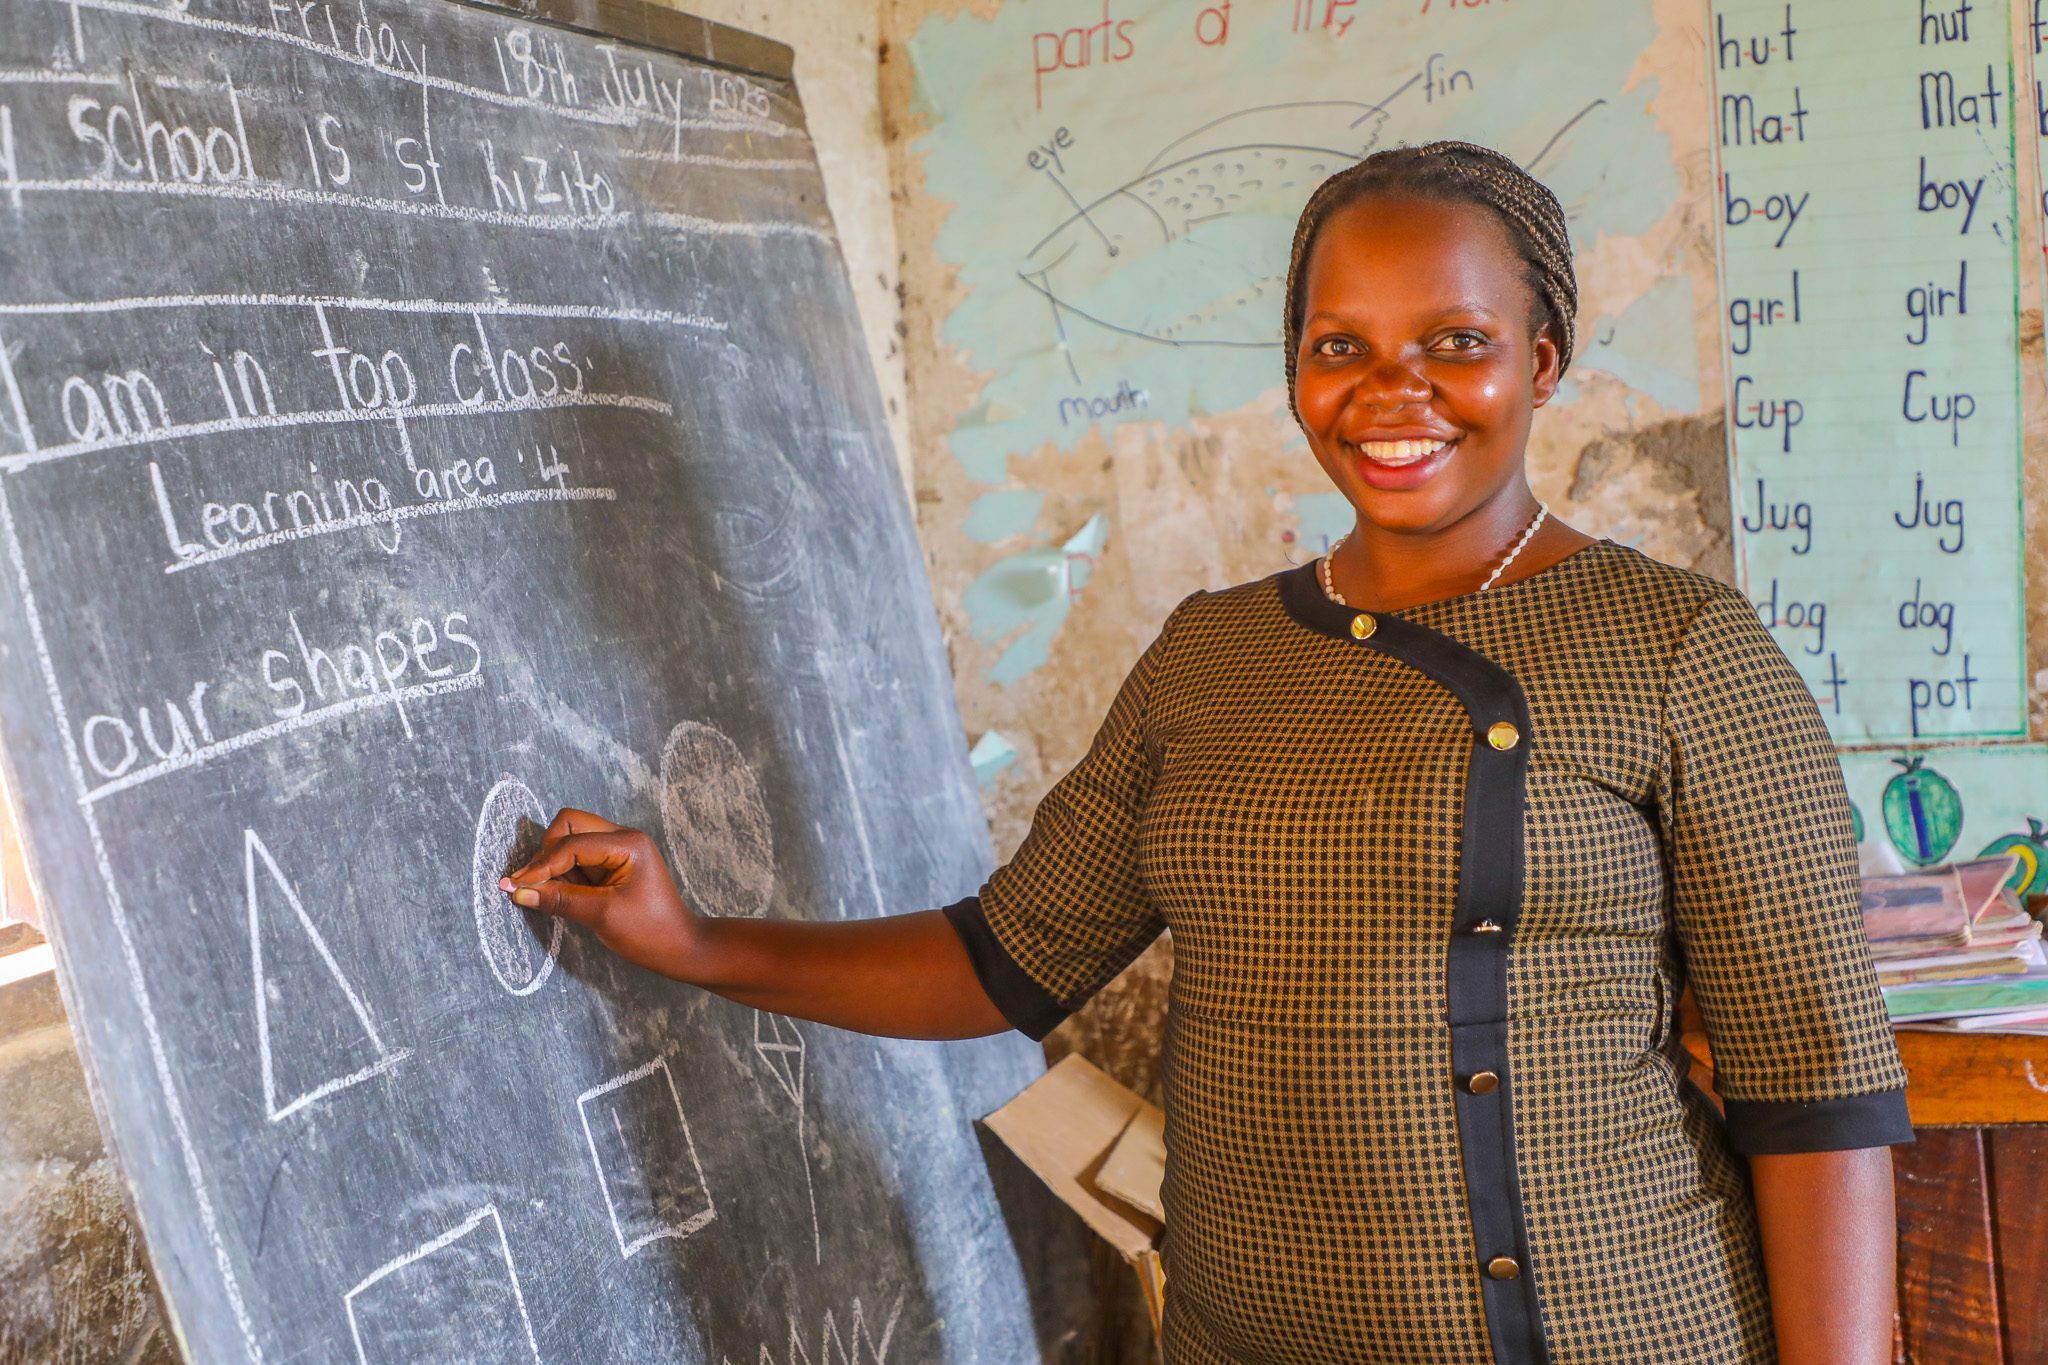 Friday 18th July 2025
y school is st kizito
I am in top class.
Learning area : 4
our shapes
parts of the
fin
eye
mouth
h-u-t hut
Mat Mat
b-oy boy
g-ir-l girl
C-u-p Cup
J-u-g Jug
d-o-g dog
t pot
i